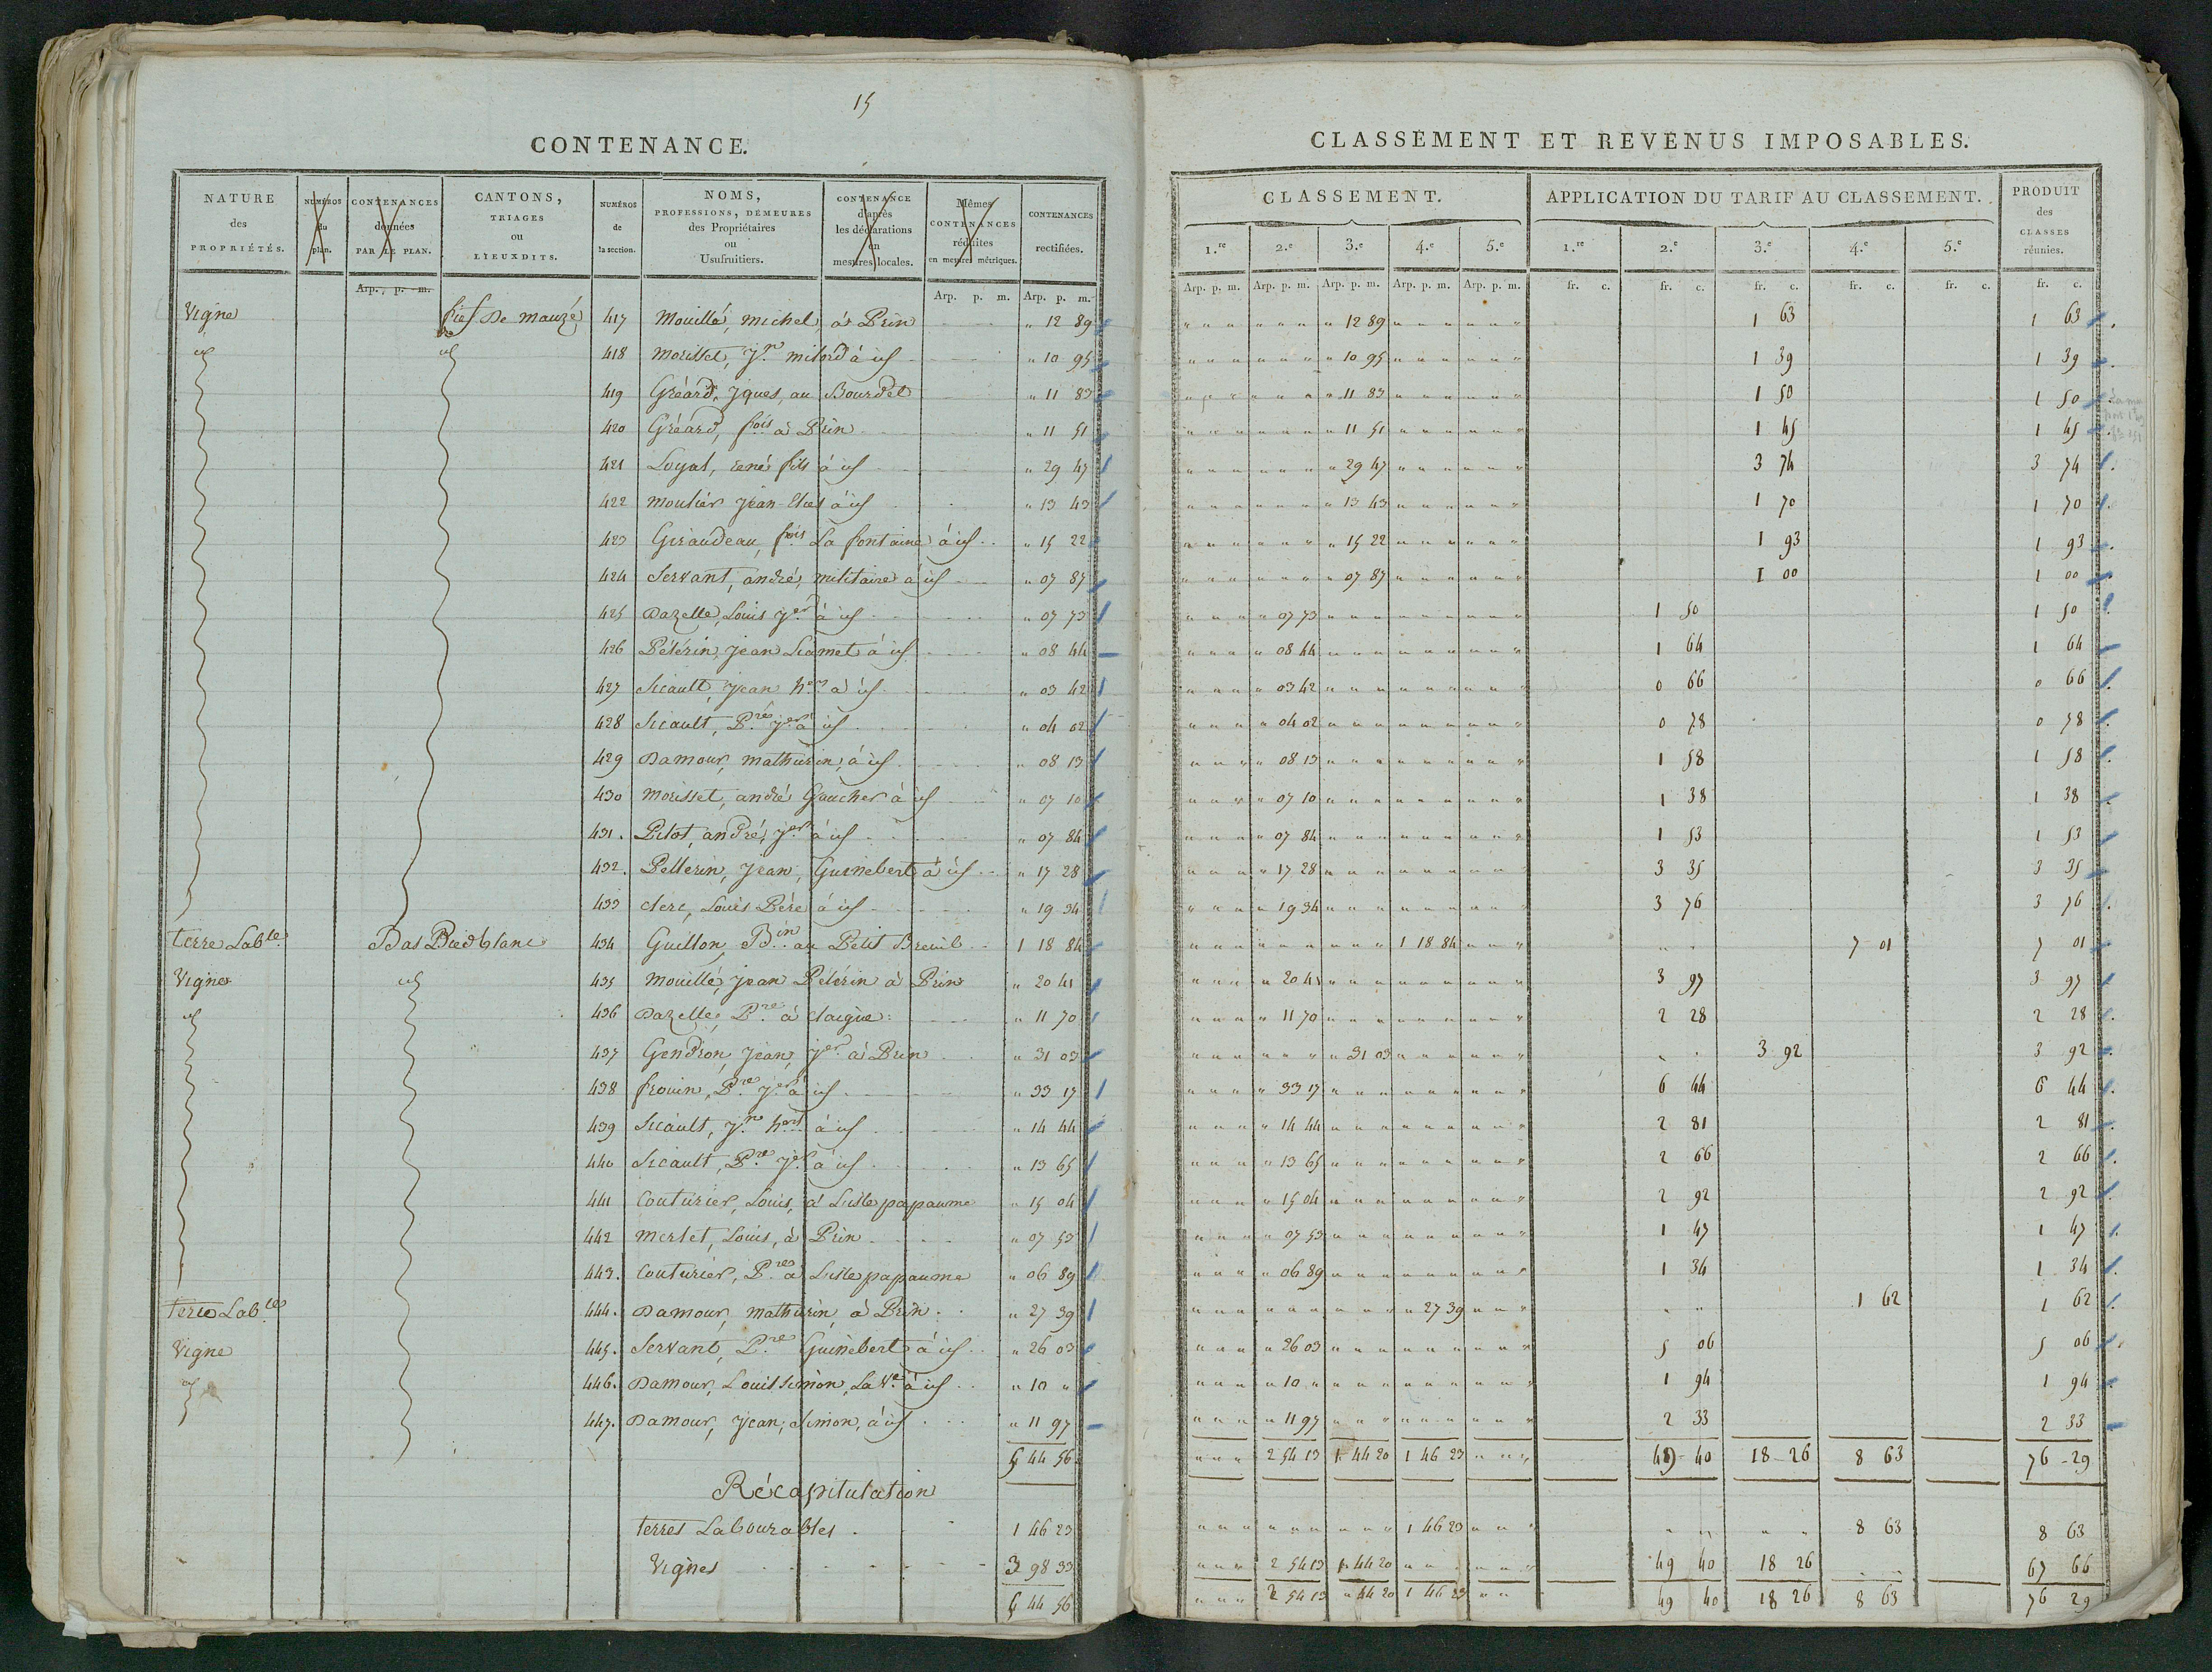 15
CONTENANCE.
NATURE des PROPRIÉTÉS. NUMÉROS du plan. CONTENANCES données PAR LE PLAN. CANTONS, TRIAGES ou LIEUXDITS. NUMÉROS de la section. NOMS, PROFESSIONS, DEMEURES des Propriétaires ou Usufruitiers. CONTENANCE d'après les déclarations en mesures locales. Mêmes CONTENANCES réduites en mesures métriques. CONTENANCES rectifiées.
Arp. p. m. Arp. p. m. Arp. p. m.
Vigne fief De mauzé 417 Mouillé, michel, à Prin " 12 89
id id 418 Morisset, Jn milord à id " 10 95
419 Gréard, Jques, au Bourdet " 11 83
420 Gréard, fois à Prin " 11 51
421 Loyal, rené fils à id " 29 47
422 moulier Jean à id " 13 43
423 Giraudeau, fois La fontaine à id " 15 22
424 Servant, andré, militaire à id " 07 87
425 Dazelle, Louis Jer à id " 07 73
426 Pélérin, Jean Liamet à id " 08 44
427 Sicault, Jean à id " 03 42
428 Sicault, Pre Jer à id " 04 02
429 Damour, mathurin, à id " 08 13
430 Morisset, andré Gaucher à id " 07 10
431. Pilot, andré, Jer à id " 07 84
432. Pellerin, Jean, Guinebert à id " 17 28
433 Clerc, Louis Père à id " 19 34
terre Lable Bas Piedblanc 434 Guillon, Bin au Petit Breuil 1 18 84
Vigne id 435 Mouillé, Jean Pélérin à Prin " 20 41
id 436 Dazelle, Pre à claigne " 11 70
437 Gendron, Jean, Jer à Prin " 31 03
438 frouin, Pre Jer à id " 33 17
439 Sicault, Jn à id " 14 44
440 Sicault, Pre Jer à id " 13 65
441 Couturier, Louis, à Lisle papaume " 15 04
442 Merlet, Louis, à Prin " 07 53
443. Couturier, Pre à Lisle papaume " 06 89
Terre Lable 444. Damour, mathurin, à Prin " 27 39
Vigne 445. Servant, Pre Guinebert à id " 26 03
id 446. Damour, Louis Simon, La Ve à id " 10 "
447. Damour, Jean, Simon, à id " 11 97
5 44 56
Récapitulation
terres Labourables 1 46 23
Vignes 3 98 33
5 44 56
CLASSEMENT ET REVENUS IMPOSABLES.
CLASSEMENT. APPLICATION DU TARIF AU CLASSEMENT. PRODUIT des CLASSES réunies.
1.re 2.e 3.e 4.e 5.e 1.re 2.e 3.e 4.e 5.e
Arp. p. m. Arp. p. m. Arp. p. m. Arp. p. m. Arp. p. m. fr. c. fr. c. fr. c. fr. c. fr. c. fr. c.
" 12 89 1 63 1 63
" 10 95 1 39 1 39
" 11 83 1 50 1 50
" 11 51 1 45 1 45
" 29 47 3 74 3 74
" 13 43 1 70 1 70
" 15 22 1 93 1 93
" 07 87 1 00 1 00
" 07 73 1 50 1 50
" 08 44 1 64 1 64
" 03 42 0 66 0 66
" 04 02 0 78 0 78
" 08 13 1 58 1 58
" 07 10 1 38 1 38
" 07 84 1 53 1 53
" 17 28 3 35 3 35
" 19 34 3 76 3 76
1 18 84 7 01 7 01
" 20 41 3 97 3 97
" 11 70 2 28 2 28
" 31 03 3 92 3 92
" 33 17 6 44 6 44
" 14 44 2 81 2 81
" 13 65 2 66 2 66
" 15 04 2 92 2 92
" 07 53 1 47 1 47
" 06 89 1 34 1 34
" 27 39 1 62 1 62
" 26 03 5 06 5 06
" 10 " 1 94 1 94
" 11 97 2 33 2 33
2 54 13 1 44 20 1 46 23 49 40 18 26 8 63 76 29
1 46 23 8 63 8 63
2 54 13 1 44 20 49 40 18 26 67 66
2 54 13 " 44 20 1 46 23 49 40 18 26 8 63 76 29